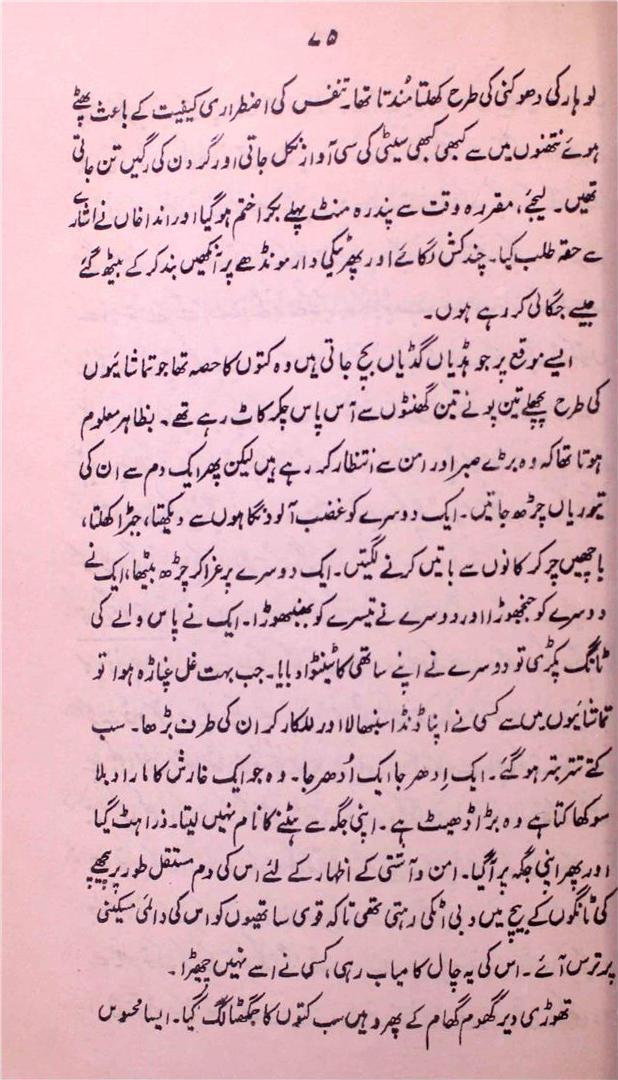 ۷۵
لوہار کی دھوکنی کی طرح کھلتا مُندتا تھا۔ تنفس کی اضطراری کیفیت کے باعث پھٹے
ہوئے نتھنوں میں سے کبھی کبھی سیٹی کی سی آواز نکل جاتی اور گردن کی رگیں تن جاتی
تھیں۔ لیجئے، مقررہ وقت سے پندرہ منٹ پہلے بکرا ختم ہو گیا اور اندا خاں نے اشارے
سے حقہ طلب کیا۔ چند کش لگائے اور پھر ٹیکی دار مونڈھے پر آنکھیں بند کر کے بیٹھ گئے
جیسے جگالی کر رہے ہوں۔
ایسے موقع پر جو ہڈیاں گڈیاں بچ جاتی ہیں وہ کتوں کا حصہ تھا جو تماشائیوں
کی طرح پچھلے تین پونے تین گھنٹوں سے آس پاس چکر کاٹ رہے تھے۔ بظاہر معلوم
ہوتا تھا کہ وہ بڑے صبر اور امن سے انتظار کر رہے ہیں لیکن پھر ایک دم سے ان کی
تیوریاں چڑھ جاتیں۔ ایک دوسرے کو غضب آلود نگاہوں سے دیکھتا، جبڑا کھلتا،
باچھیں چر کر کانوں سے باتیں کرنے لگتیں۔ ایک دوسرے پر غرا کر چڑھ بیٹھا، ایک نے
دوسرے کو جھنجھوڑا اور دوسرے نے تیسرے کو بھنبھوڑا۔ ایک نے پاس والے کی
ٹانگ پکڑی تو دوسرے نے اپنے ساتھی کا ٹینٹوا دبایا۔ جب بہت غل غپاڑہ ہوا تو
تماشائیوں میں سے کسی نے اپنا ڈنڈا سنبھالا اور للکار کر ان کی طرف بڑھا۔ سب
کتے تتر بتر ہو گئے۔ ایک اِدھر جا ایک اُدھر جا۔ وہ جو ایک خارش کا مارا دبلا
سوکھا کتا ہے وہ بڑا ڈھیٹ ہے۔ اپنی جگہ سے ہٹنے کا نام نہیں لیتا۔ ذرا ہٹ گیا
اور پھر اپنی جگہ پر آ گیا۔ امن و آشتی کے اظہار کے لئے اس کی دم مستقل طور پر پیچھے
کی ٹانگوں کے بیچ میں دبی اٹکی رہتی تھی تاکہ قوی ساتھیوں کو اس کی دائمی مسکینی
پر ترس آئے۔ اس کی یہ چال کامیاب رہی، کسی نے اسے نہیں چھیڑا۔
تھوڑی دیر گھوم گھام کے پھر وہیں سب کتوں کا جمگھٹا لگ گیا۔ ایسا محسوس